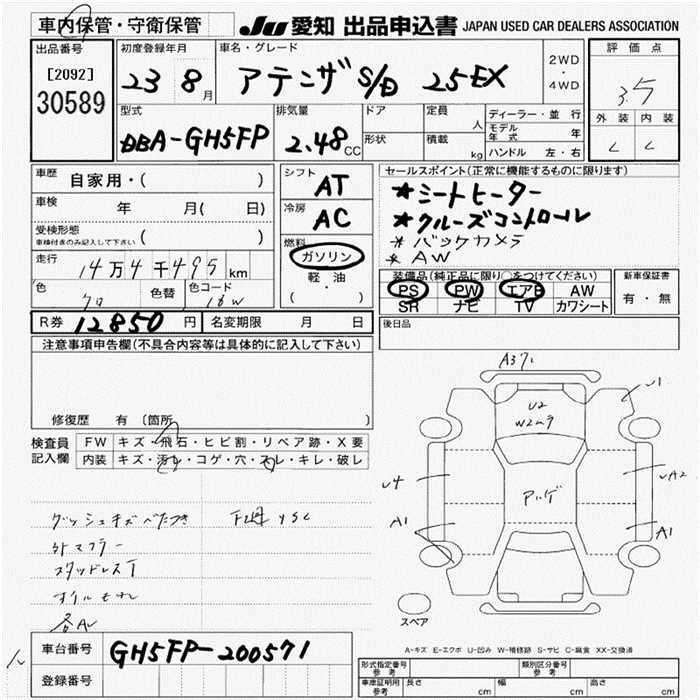 車内保管・守衛保管
JU 愛知 出品申込書 JAPAN USED CAR DEALERS ASSOCIATION
出品番号
[2092]
30589
初度登録年月
23 8月
車名・グレード
アテンザ S/D 25EX
2WD
・
4WD
評価点
3.5
外装 内装
C C
型式
DBA-GH5FP
排気量
2.48 CC
ドア
形状
定員
人
積載
kg
ディーラー・並行
モデル年式 年
ハンドル 左・右
車歴
自家用・( )
車検
年 月( 日)
受検形態
車検付きのみ記入して下さい ( )
走行
14万4千495 km
色
クロ
色替
色コード
16W
シフト
AT
冷房
AC
燃料
ガソリン
軽・油
( )
セールスポイント(正常に機能するものに限ります)
*シートヒーター
*クルーズコントロール
*バックカメラ
*AW
装備品(純正品に限り○をつけてください)
PS PW エアB AW
SR ナビ TV カワシート
新車保証書
有・無
R券 12850 円 名変期限 月 日
後日品
注意事項申告欄(不具合内容等は具体的に記入して下さい)
修復歴 有 〔箇所 〕
検査員
記入欄
FW キズ・飛石・ヒビ割・リペア跡・X要
内装 キズ・汚れ・コゲ・穴・スレ・キレ・破レ
ダッシュキズベたつき
外マフラー
スタッドレスT
オイルもれ
各AU
A3
U1
U2
W2ムラ
U4
UA2
A1
A1
スペア
A-キズ E-エクボ U-凹み W-補修跡 S-サビ C-腐食 XX-交換済
車台番号 GH5FP-200571
登録番号
形式指定番号 参考
類別区分番号 参考
車庫証明用 参考
長さ cm 幅 cm 高さ cm